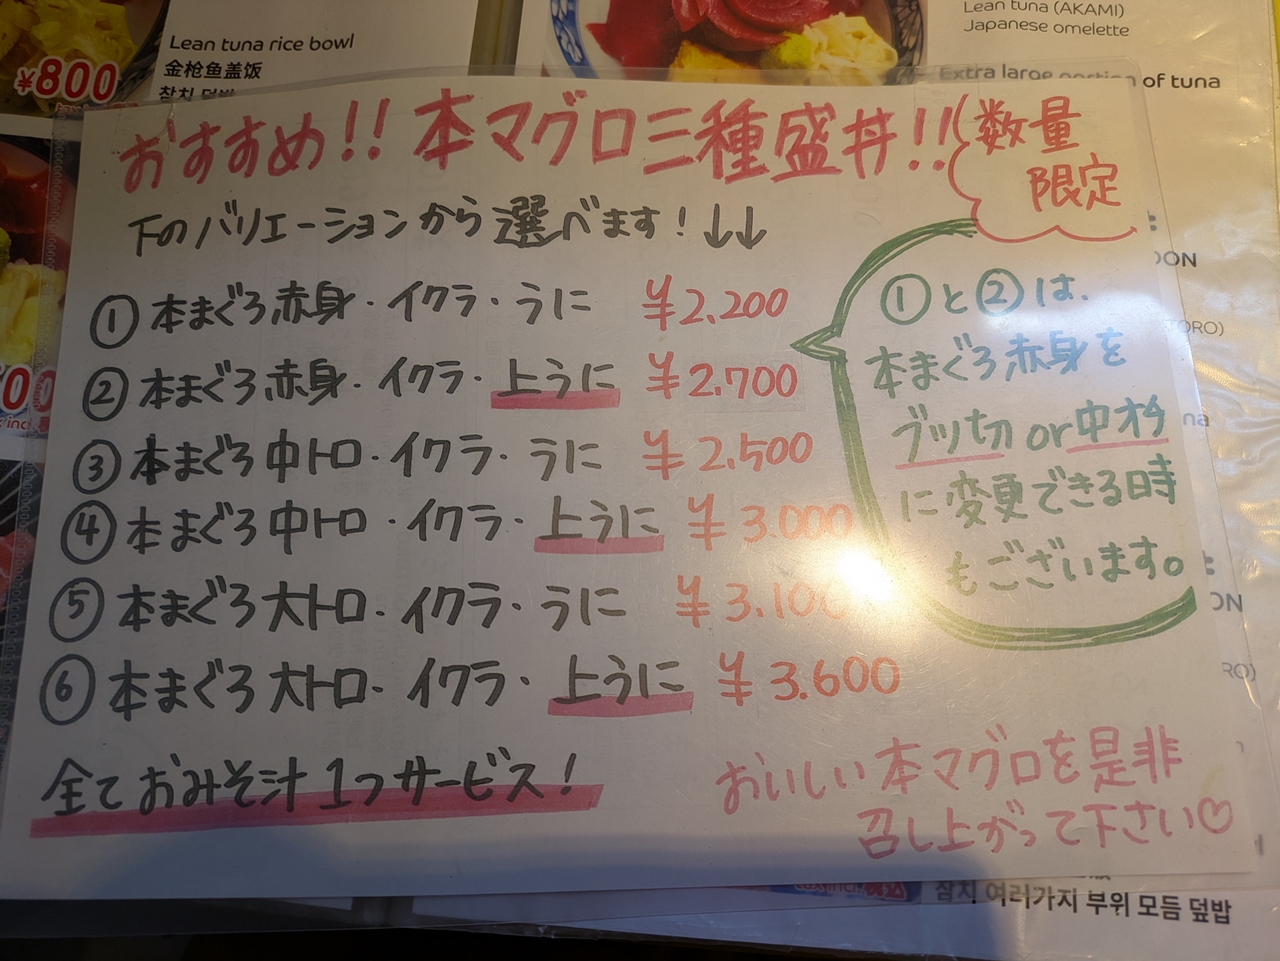 Lean tuna rice bowl
金枪鱼盖饭
¥800
Lean tuna (AKAMI)
Japanese omelette
Extra large portion of tuna
おすすめ!! 本マグロ三種盛丼!!
数量
限定
下のバリエーションから選べます!↓↓
① 本まぐろ赤身・イクラ・うに ¥2.200
② 本まぐろ赤身・イクラ・上うに ¥2.700
③ 本まぐろ中トロ・イクラ・うに ¥2.500
④ 本まぐろ中トロ・イクラ・上うに ¥3.000
⑤ 本まぐろ大トロ・イクラ・うに ¥3.100
⑥ 本まぐろ大トロ・イクラ・上うに ¥3.600
全ておみそ汁1つサービス!
①と②は、
本まぐろ赤身を
ブツ切or中オチ
に変更できる時
もございます。
おいしい本マグロを是非
召し上がって下さい♡
참치 여러가지 부위 모듬 덮밥